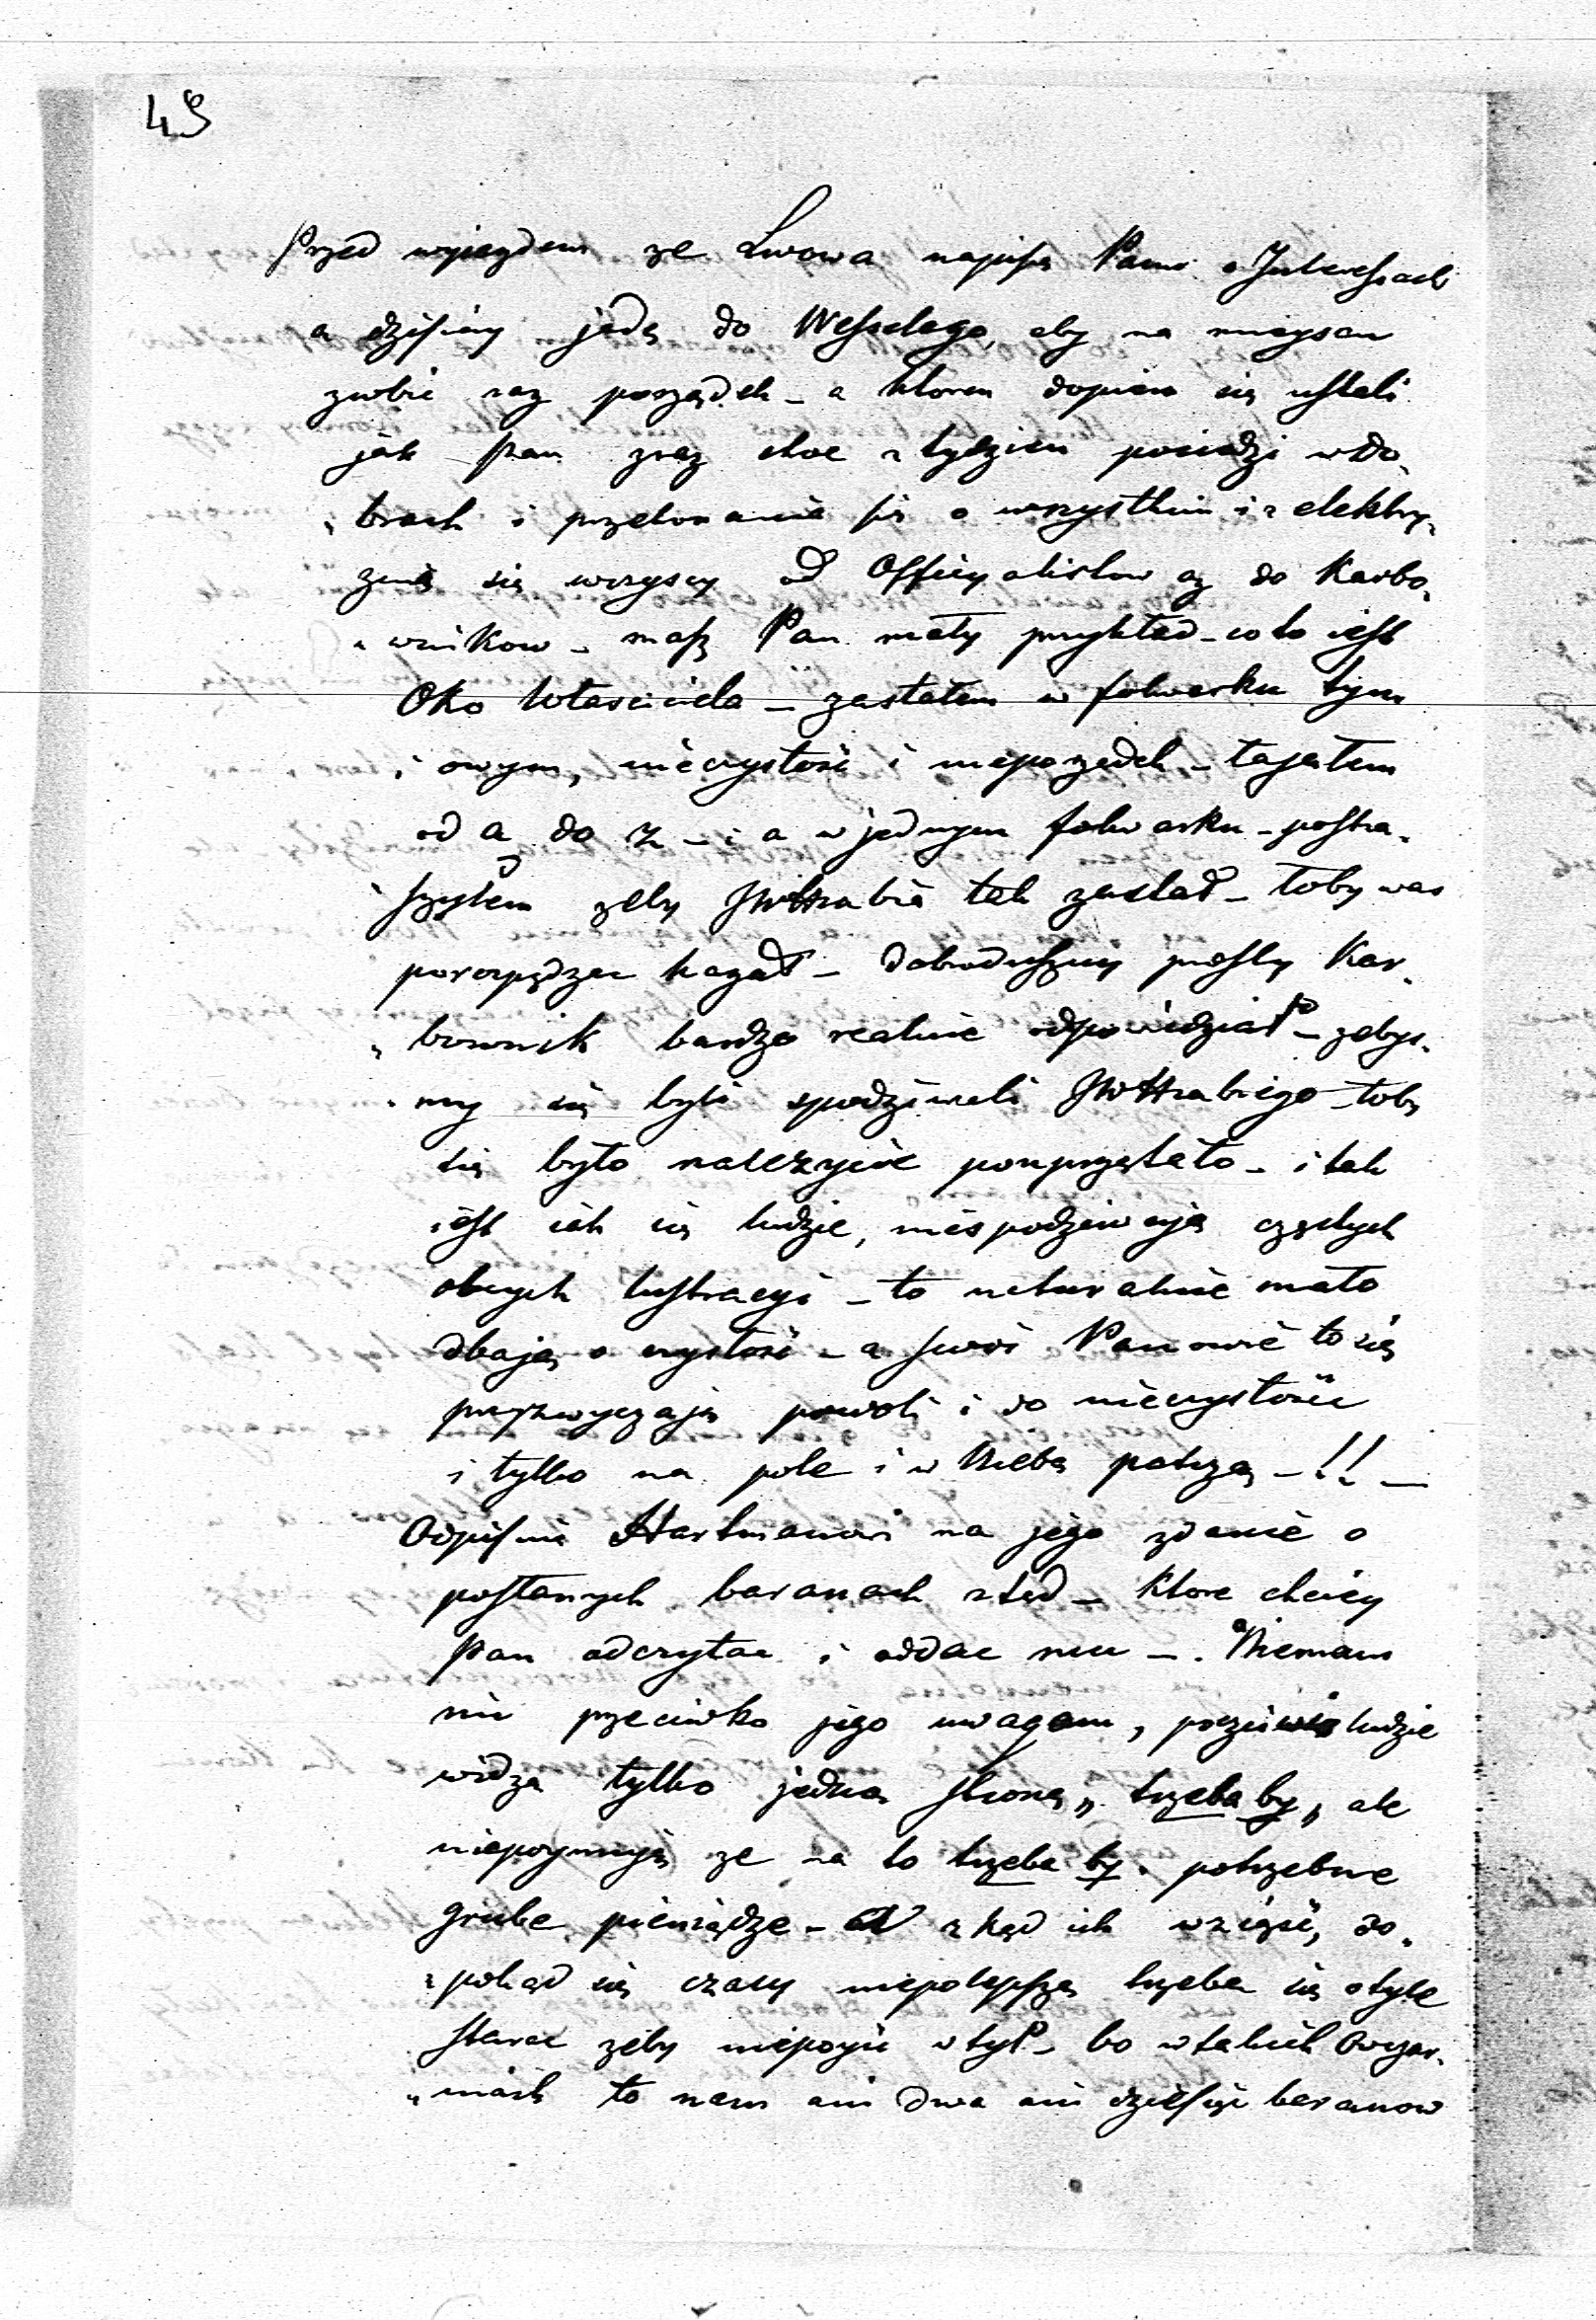 49
Przed wyjazdem ze Lwowa napiszę Panu o Interessach
a dzisiay jadę do Wesselego, aby na mieyscu
zrobić raz porządek – a ktoren dopiero się ustali
jak Pan zraz choc z tydzien posiedzi w Do„
„brach i przekonanie się o wszystkim i z elektry„
zuią się wszyscy od Officyalistow az do Karbo„
„wnikow – masz Pan mały przykład – co to iest
Oko Własciciela – zastałem w folwarku tym
i owym, nieczystość i nieporządek – łajałem
od a do z – i a w jednym folwarku – postra„
szyłem zeby JWHrabia tak zastał – toby was
porozpędzac kazał – dobroduszny prosty Kar„
„bownik bardzo realnie odpowiedział – zebys„
„my się byli spodziwali JWHrabiego – toby
się było nalezycie pouprzątało – i tak
iest iak się ludzie, niespodziewają częstych
obcych lustracyi – to naturalnie mało
dbają o czystość – a swoi Panowie to się
przyzwyczają powoli i do nieczystości
i tylko na pole i w Niebo patrzą – !! –
Odpisuię Hartmanowi na jego zdanie o
posłanych baranach ztąd – Ktore chciey
Pan odczytac i oddac mu – . Niemam
nic przeciwko jego uwagom, ludzie
widzą tylko jedną stronę „trzeba by„ ale
niepoymuią ze na to trzeba by potrzebne
grube pieniądze – a zkąd ich wziąść, do„
„pokąd się czasy niepolepszą trzeba się o tyle
starac zeby niepoyść w tył – bo w takich Owczar„
„niach to nam ani dwa ani dziesięć baranow